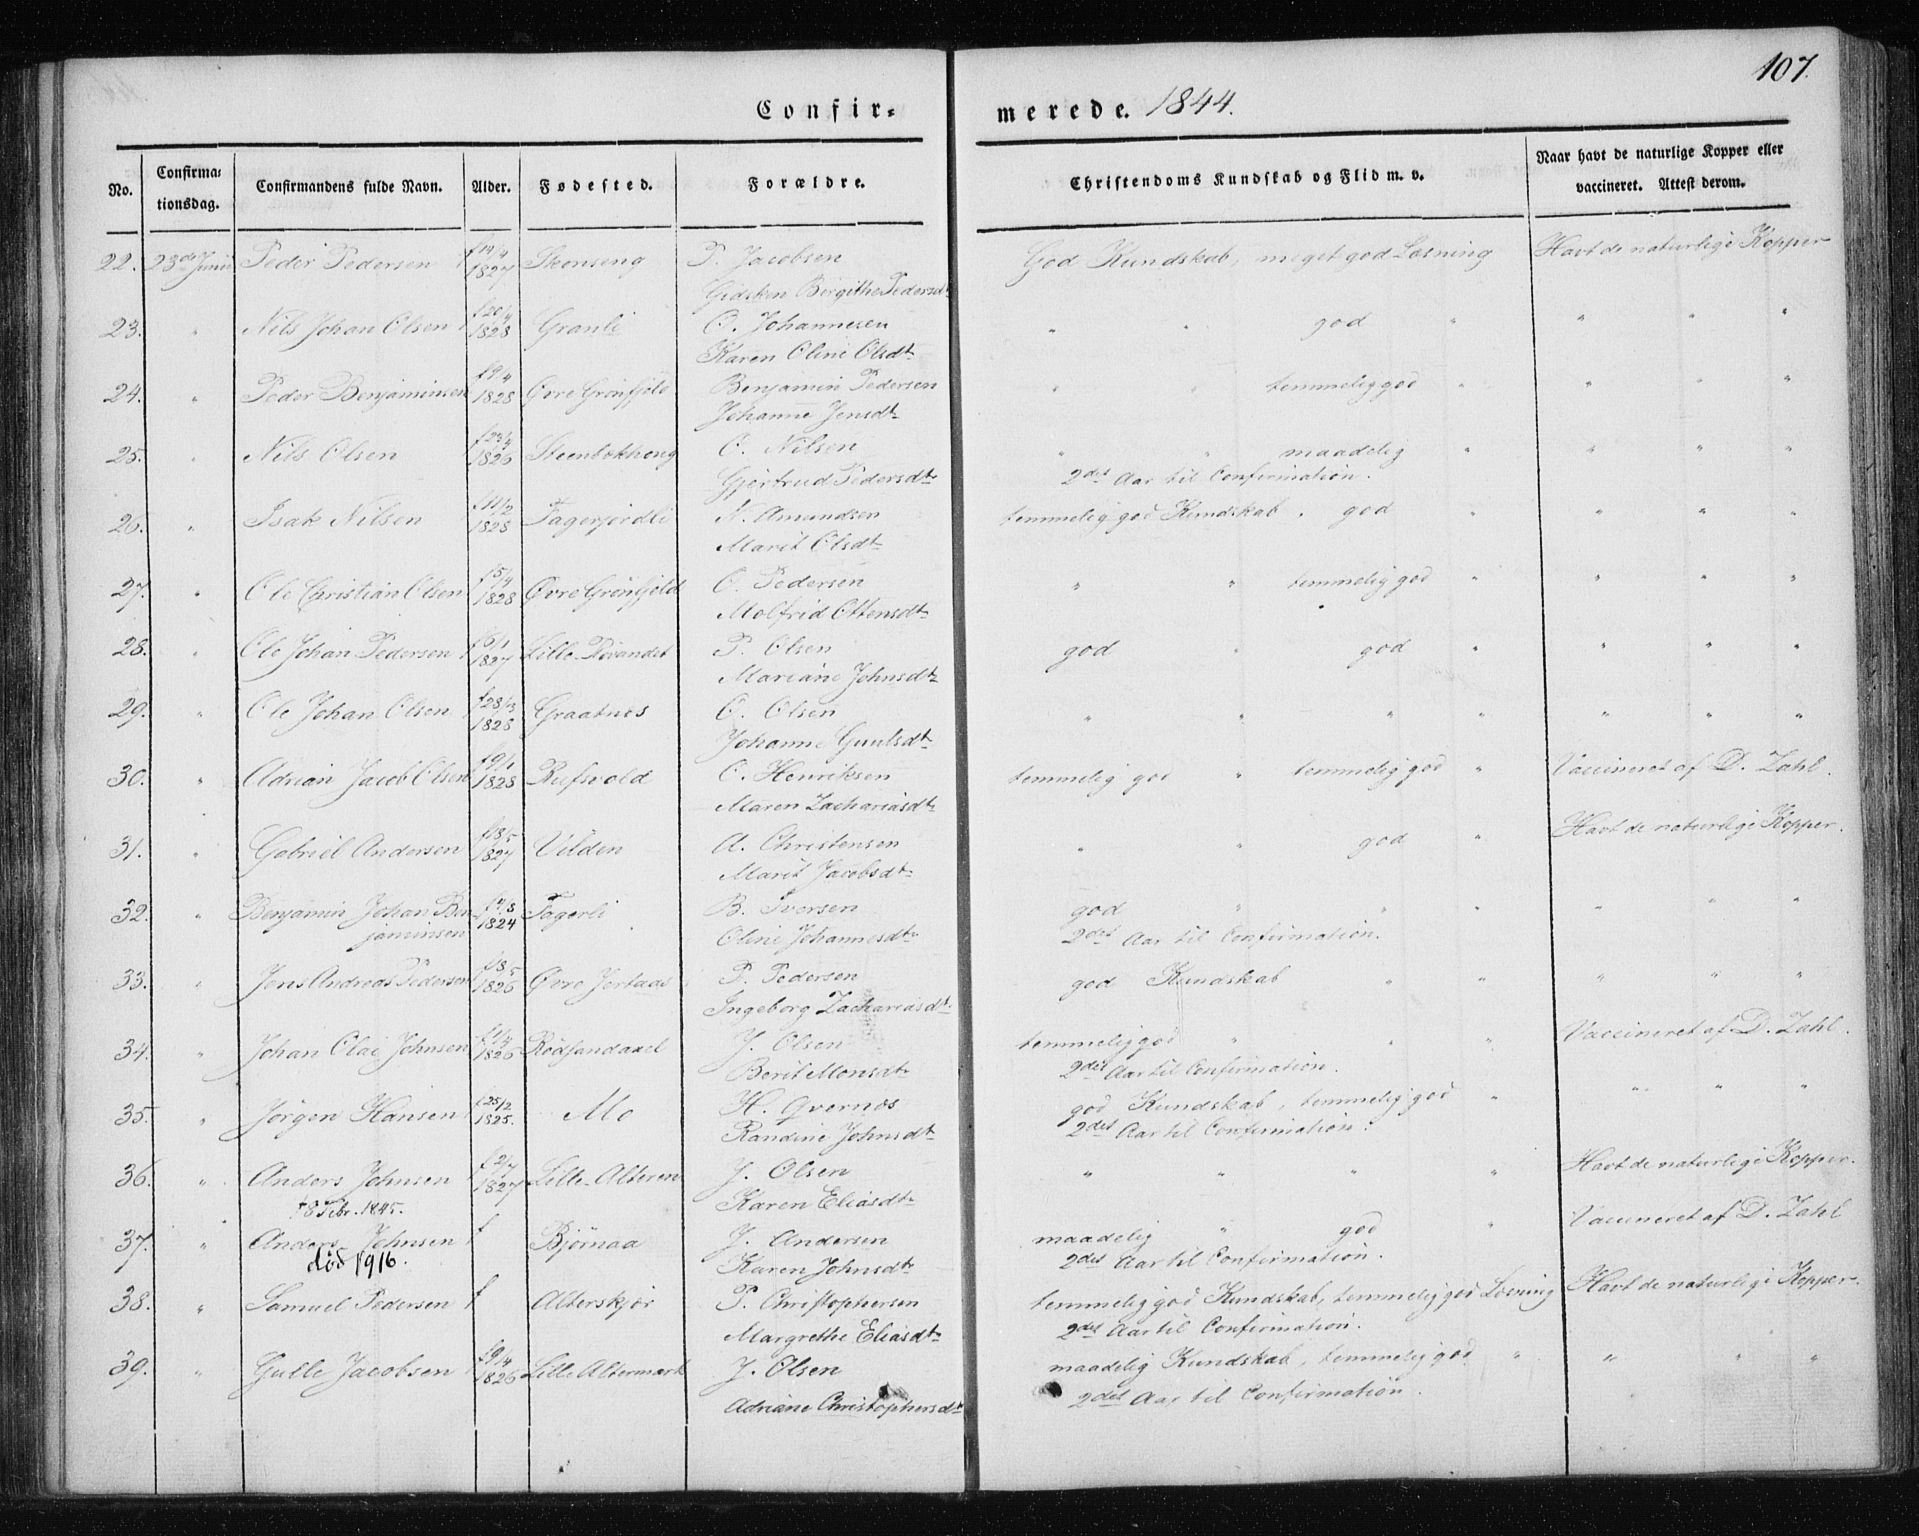 107.
Confir= merede. 1844.
No. Confirma= tionsdag. Confirmandens fulde Navn. Alder. Fødested. Forældre. Christendoms Kundskab og Flid m. v. Naar havt de naturlige Kopper eller vaccineret. Attest derom.
22. 23de Junii Peder Pedersen f 14/4 1827 Skonseng P. Jacobsen God Kundskab, meget god Læsning Havt de naturlige Kopper
Gidsken Birgithe Pedersdt
23. " Nils Johan Olsen f 20/4 1828 Granli O. Johannesen " " god " " " "
Karen Oline Olsdt
24. " Peder Benjaminsen f 9/4 1828 Øvre Grønfjeld Benjamin Pedersen " " temmelig god " " " "
Johanne Jensdt
25. " Nils Olsen f 23/4 1826 Steenbokheng O. Nilsen " " maadelig " " " "
Gjertrud Pedersdtr 2det Aar til Confirmation.
26. " Isak Nilsen f 11/2 1828 Fagerjordli N. Amundsen temmelig god Kundskab. god " " " "
Marit Olsdt
27. " Ole Christian Olsen f 5/4 1828 Øvre Grønfjeld O. Pedersen " " temmelig god " " " "
Molfrid Ottensdt
28. " Ole Johan Pedersen f 6/1 1827 Lille- P. Olsen god " god " " " "
Mariane Johnsdtr
29. " Ole Johan Olsen f 28/3 1828 Graatnes O. Olsen " " " " " " "
Johanne Guulsdt
30. " Adrian Jacob Olsen f 9/1 1828 Rufsvold O. Henriksen temmelig god " temmelig god " Vaccineret af D. Zahl.
Maren Zachariasdt
31. " Gabriel Andersen f 18/5 1827 Vilden A. Christensen " " god " Havt de naturlige Kopper.
Marit Jacobsdt
32. " Benjamin Johan Ben- f 4/8 1824 Fagerli B. Iversen god " " " " " "
jaminsen Oline Johannesdtr 2det Aar til Confirmation.
33. " Jens Andreas Pedersen f 18/5 1826 Øvre Jertaas P. Pedersen god Kundskab " " " " "
Ingeborg Zachariasdt.
34. " Johan Olai Johnsen f 11/4 1826 Rødsandaxel J. Olsen temmelig god " " " Vaccineret af D. Zahl.
Berit Monsdt 2det Aar til Confirmation.
35. " Jørgen Hansen f 25/2 1825. Mo H. Qvernæs god Kundskab, temmelig god " " " "
Randine Johnsdt 2det Aar til Confirmation.
36. " Anders Johnsen f 2/7 1827 Lille-Alteren J. Olsen " " " " Havt de naturlige Kopper.
† 8 Febr. 1845. Karen Eliasdtr
37. " Anders Johnsen f Bjørnaa J. Andersen maadelig " god " Vaccineret af D. Zahl
død 1916. Karen Johnsdtr 2det Aar til Confirmation.
38. " Samuel Pedersen f Alterskjær P. Christophersen temmelig god Kundskab, temmelig god Læsning Havt de naturlige Kopper.
Margrethe Eliasdtr 2det Aar til Confirmation.
39. " Gulle Jacobsen f 9/4 1826 Lille Altermark J. Olsen maadelig Kundskab, temmelig god " " " "
Adriane Christophersdt 2det Aar til Confirmation.